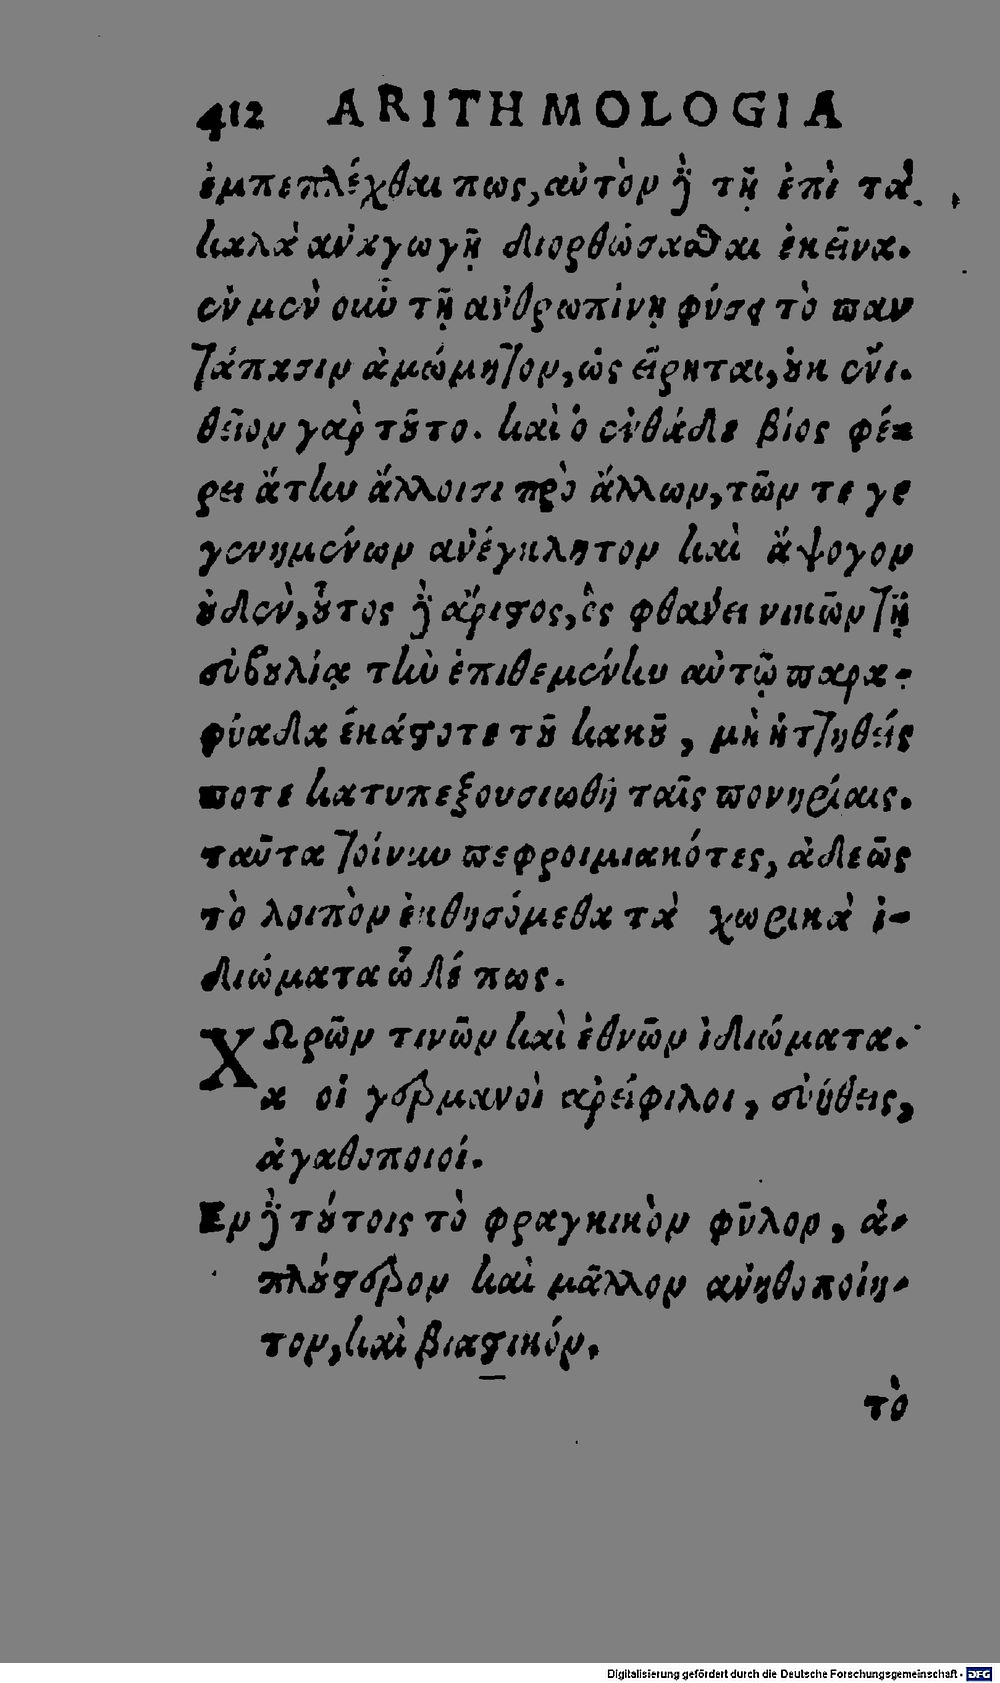 412 ARITHMOLOGIA
ἐμπεπλέχθαι πως, αὐτὸν δὲ τῇ ἐπὶ τὰ
καλὰ ἀναγωγῇ διορθώσασθαι ἐκεῖνα.
ἐν μὲν οὖν τῇ ἀνθρωπίνῃ φύσει τὸ παν
τάπασιν ἀμώμητον, ὡς εἴρηται, οὐκ ἔνι.
θεῖον γὰρ τοῦτο. καὶ ὁ ἐνθάδε βίος φέ-
ρει ἄτην ἄλλοισι πρὸ ἄλλων, τῶν τε γε
γενημένων ἀνέγκλητον καὶ ἄψογον
οὐδὲν, οὗτος δὲ ἄριστος, ὃς φθάνει νικῶν τῇ
εὐβουλίᾳ τὴν ἐπιθεμένην αὐτῷ παρα-
φύαδα ἑκάστοτε τοῦ κακοῦ, μὴ ἡττηθείς
ποτε κατυπεξουσιωθῇ ταῖς πονηρίαις.
ταῦτα τοίνυν πεφροιμιακότες, ἀδεῶς
τὸ λοιπὸν ἐκθησόμεθα τὰ χωρικὰ ἰ-
διώματα ὧδέ πως.
ΧΩρῶν τινῶν καὶ ἐθνῶν ἰδιώματα.
α οἱ γερμανοὶ ἀρείφιλοι, εὐήθεις,
ἀγαθοποιοί.
Ἐν δὲ τούτοις τὸ φραγκικὸν φῦλον, ἁ-
πλούστερον καὶ μᾶλλον ἀνηθοποίη-
τον, καὶ βιαστικόν.
τὸ
Digitalisierung gefördert durch die Deutsche Forschungsgemeinschaft - DFG